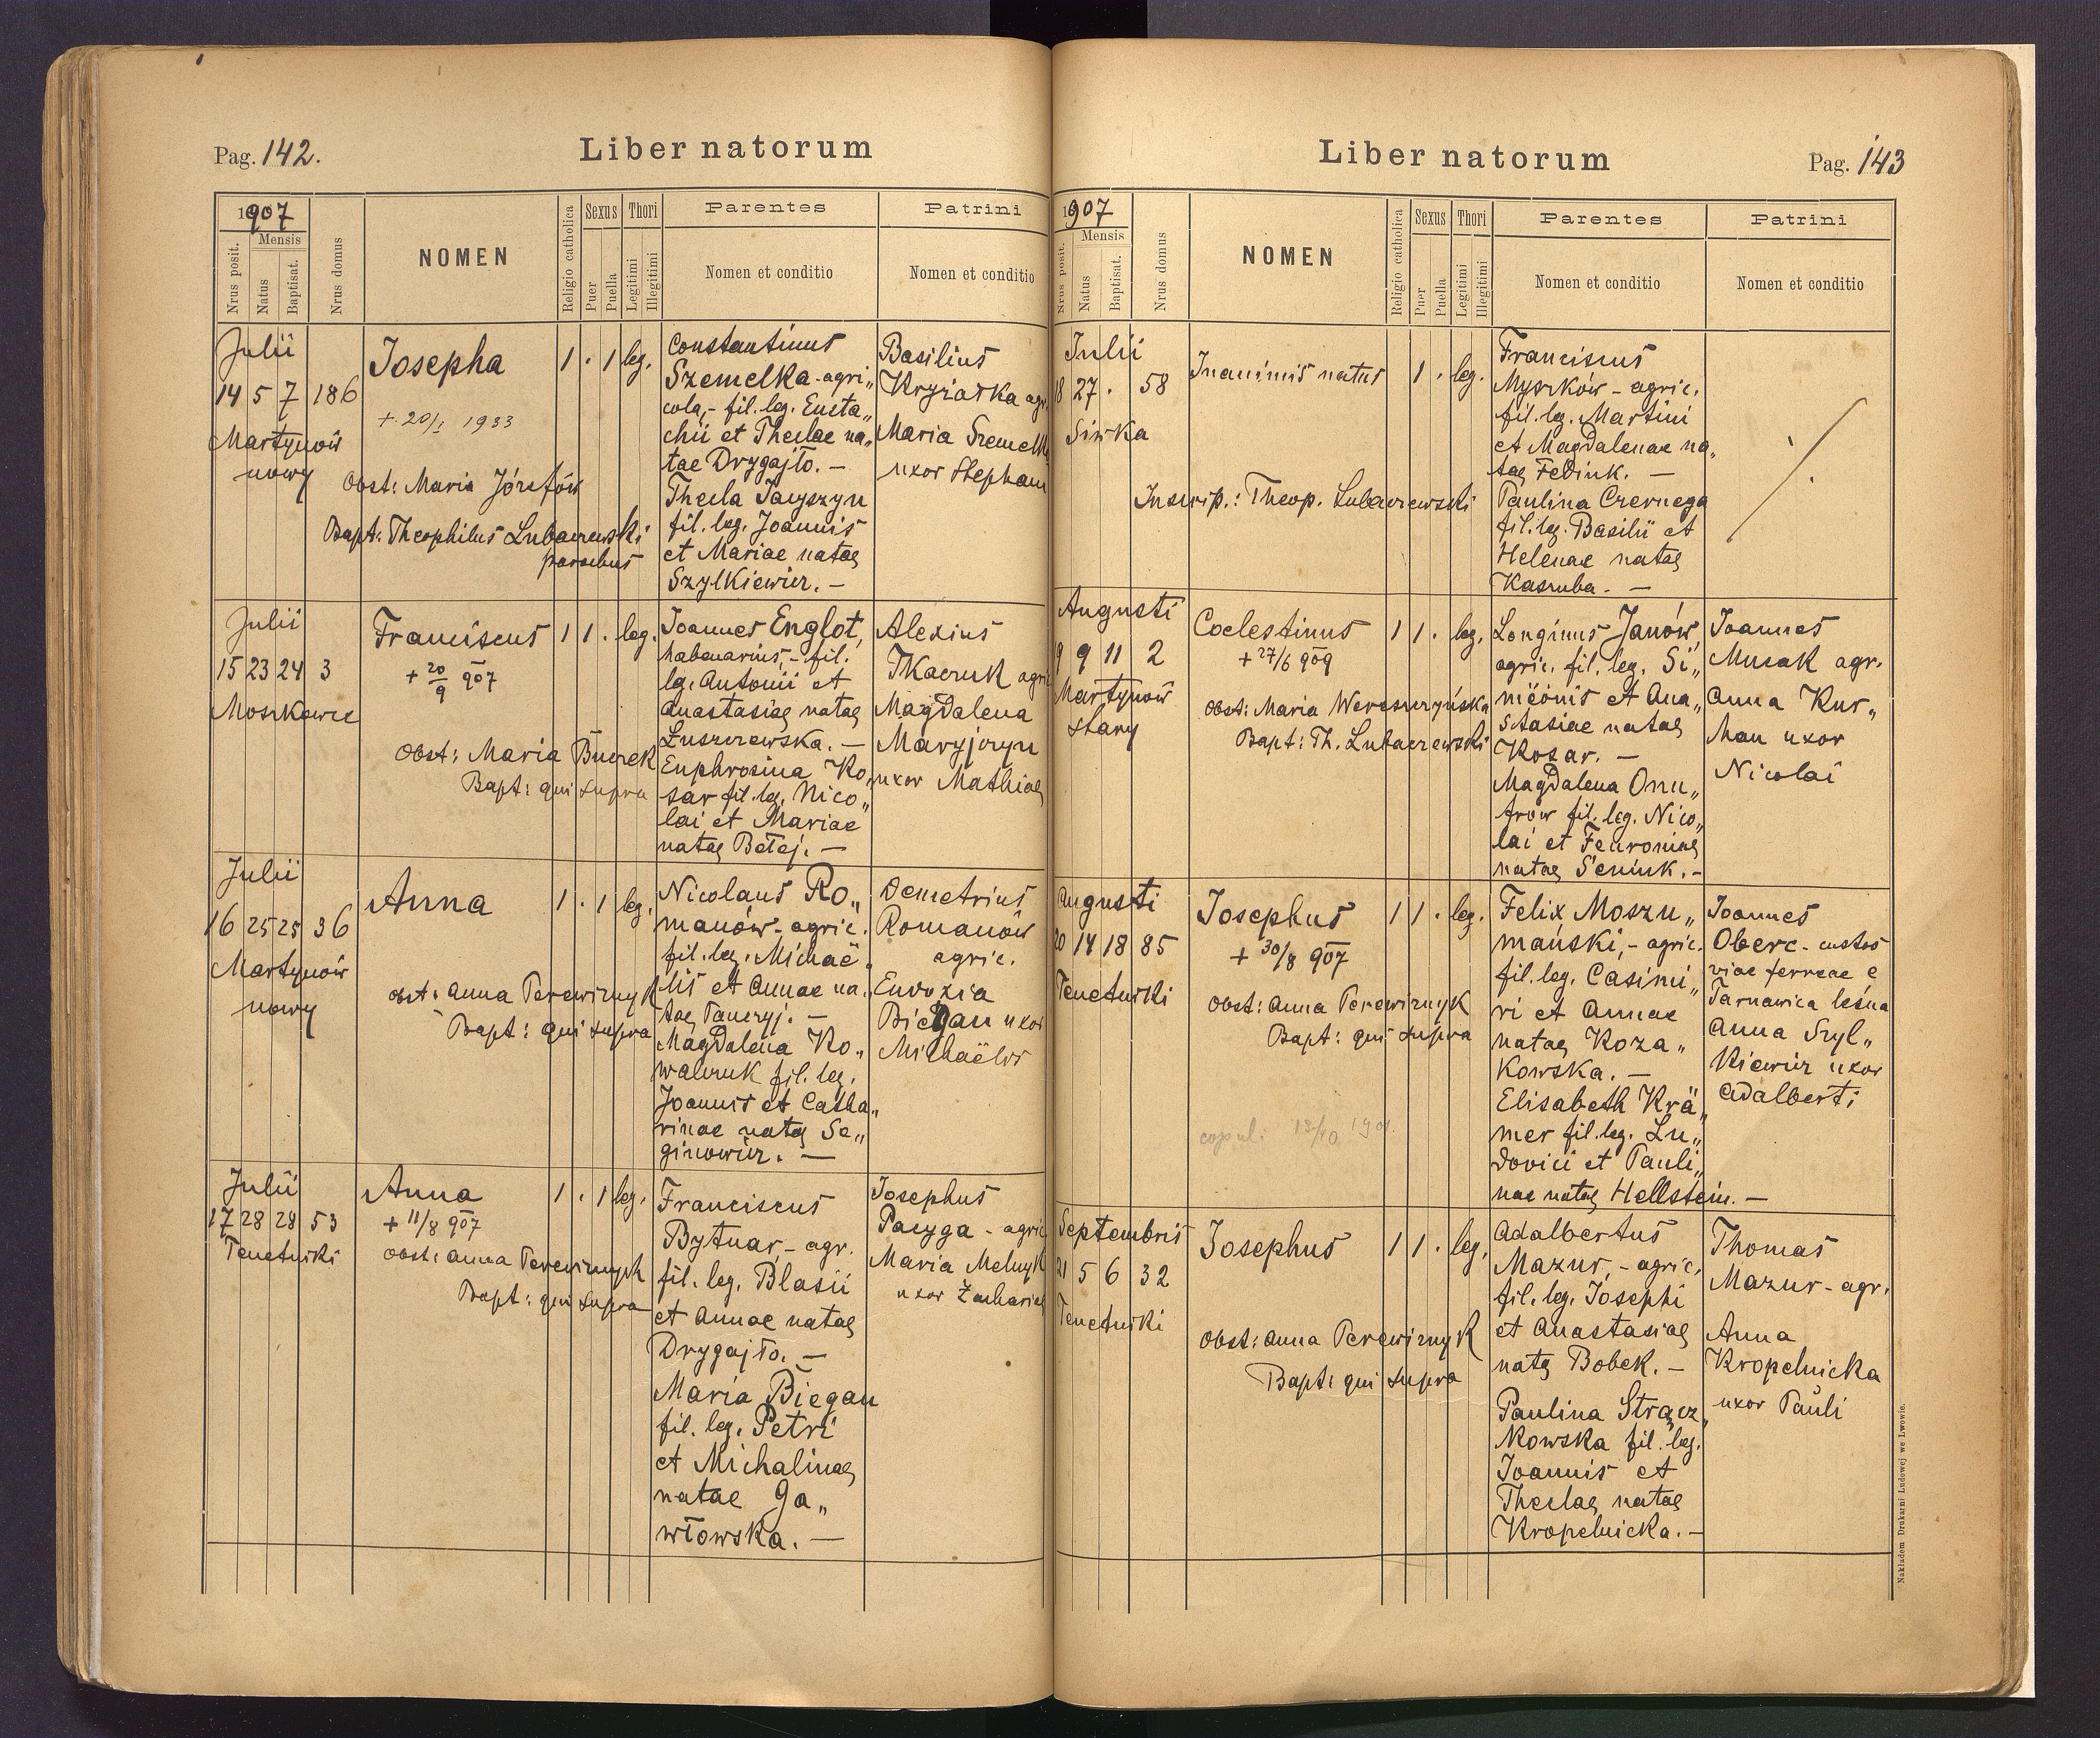 Pag. 142.
Liber natorum
1907
Nrus posit.
Mensis
Natus
Baptisat.
Nrus domus
NOMEN
Religio catholica
Sexus
Puer
Puella
Thori
Legitimi
Illegitimi
Parentes
Nomen et conditio
Patrini
Nomen et conditio
Julii
14 5 7 186
Martynów
nowy
Josepha
+ 20/I 1933
Obst: Maria Józefów
Bapt: Theophilus Lubaczewski
parochus
1 . 1 leg.
Constantinus
Szemelka - agri„
cola, - fil. leg. Eusta„
chii et Theclae na„
tae Drygajło. —
Thecla Jacyszyn
fil. leg. Joannis
et Mariae natae
Szylkiewicz. —
Basilius
agr.
Maria Szemelka
uxor Stephani
Julii
15 23 24 3
Moszkowce
Franciscus
+ 20/9 907
Obst: Maria Burek
Bapt: qui supra
1 1 . leg.
Joannes Englot,
habenarius, - fil.
lg. Antonii et
Anastasiae natae
Łuszczewska. —
Euphrosina Ko„
sar fil. leg. Nico„
lai et Mariae
natae Betej. —
Alexius
Tkaczuk agric
Magdalena
Maryjczyn
uxor Mathiae
Julii
16 25 25 36
Martynów
nowy
Anna
obst: Anna Perewiznyk
Bapt: qui supra
1 . 1 leg.
Nicolaus Ro„
manów - agric.
fil. leg. Michaë„
lis et Annae na„
tae Panczyj. —
Magdalena Ko„
walczuk fil. leg.
Joannis et Catha„
rinae natae Se„
ginowicz. —
Demetrius
Romanów
agric.
Eudoxia
Biegan uxor
Michaëlis
Julii
17 28 28 53
Tenetniki
Anna
+ 11/8 907
obst: Anna Perewiznyk
Bapt: qui supra
1 . 1 leg.
Franciscus
Bytnar - agr.
fil. leg. Blasii
et Annae natae
Drygajło. —
Maria Biegan
fil. leg. Petri
et Michalinae
natae Ga„
włowska. —
Josephus
Pacyga - agric
Maria Melnyk
uxor Zachariae
Liber natorum
Pag. 143
1907
Nrus posit.
Mensis
Natus
Baptisat.
Nrus domus
NOMEN
Religio catholica
Sexus
Puer
Puella
Thori
Legitimi
Illegitimi
Parentes
Nomen et conditio
Patrini
Nomen et conditio
Julii
18 27 . 58
Siwka
Inanimis natus
Inscrip.: Theop. Lubaczewski
1 . leg.
Franciscus
Myszków - agric.
fil. leg. Martini
et Magdalenae na„
tae Fediuk. —
Paulina Czernega
fil. leg. Basilii et
Helenae natae
Kaszuba. —
Augusti
19 9 11 2
Martynów
stary
Coelestinus
+ 27/6 909
obst: Maria Wereszczyńska
Bapt: Th. Lubaczewski
1 1 . leg.
Longinus Janów,
agric. fil. leg. Si„
mëonis et Ana„
stasiae natae
Kosar. —
Magdalena Onu„
frów fil. leg. Nico„
lai et Feuroniae
natae Seniuk. —
Joannes
Musak agr.
Anna Kur„
Man uxor
Nicolai
Augusti
20 14 18 85
Tenetniki
Josephus
+ 30/8 907
obst: Anna Perewiznyk
Bapt: qui supra
1 1 . leg.
Felix Moszu„
mański, - agric.
fil. leg. Casimi„
ri et Annae
natae Koza„
kowska. —
Elisabeth Krä„
mer fil. leg. Lu„
dovici et Pauli„
nae natae Hellstein. —
Joannes
Oberc - custos
viae ferreae e
Tarnawica leśna
Anna Szyl„
kiewicz uxor
Adalberti
Septembris
21 5 6 32
Tenetniki
Josephus
obst: Anna Perewiznyk
Bapt: qui supra
1 1 . leg.
Adalbertus
Mazur, - agric.
fil. leg. Josephi
et Anastasiae
natę Bobek. —
Paulina Strącz„
kowska fil. leg.
Joannis et
Theclae natae
Kropelnicka. —
Thomas
Mazur - agr.
Anna
Kropelnicka
uxor Pauli
Nakładem Drukarni Ludowej we Lwowie.